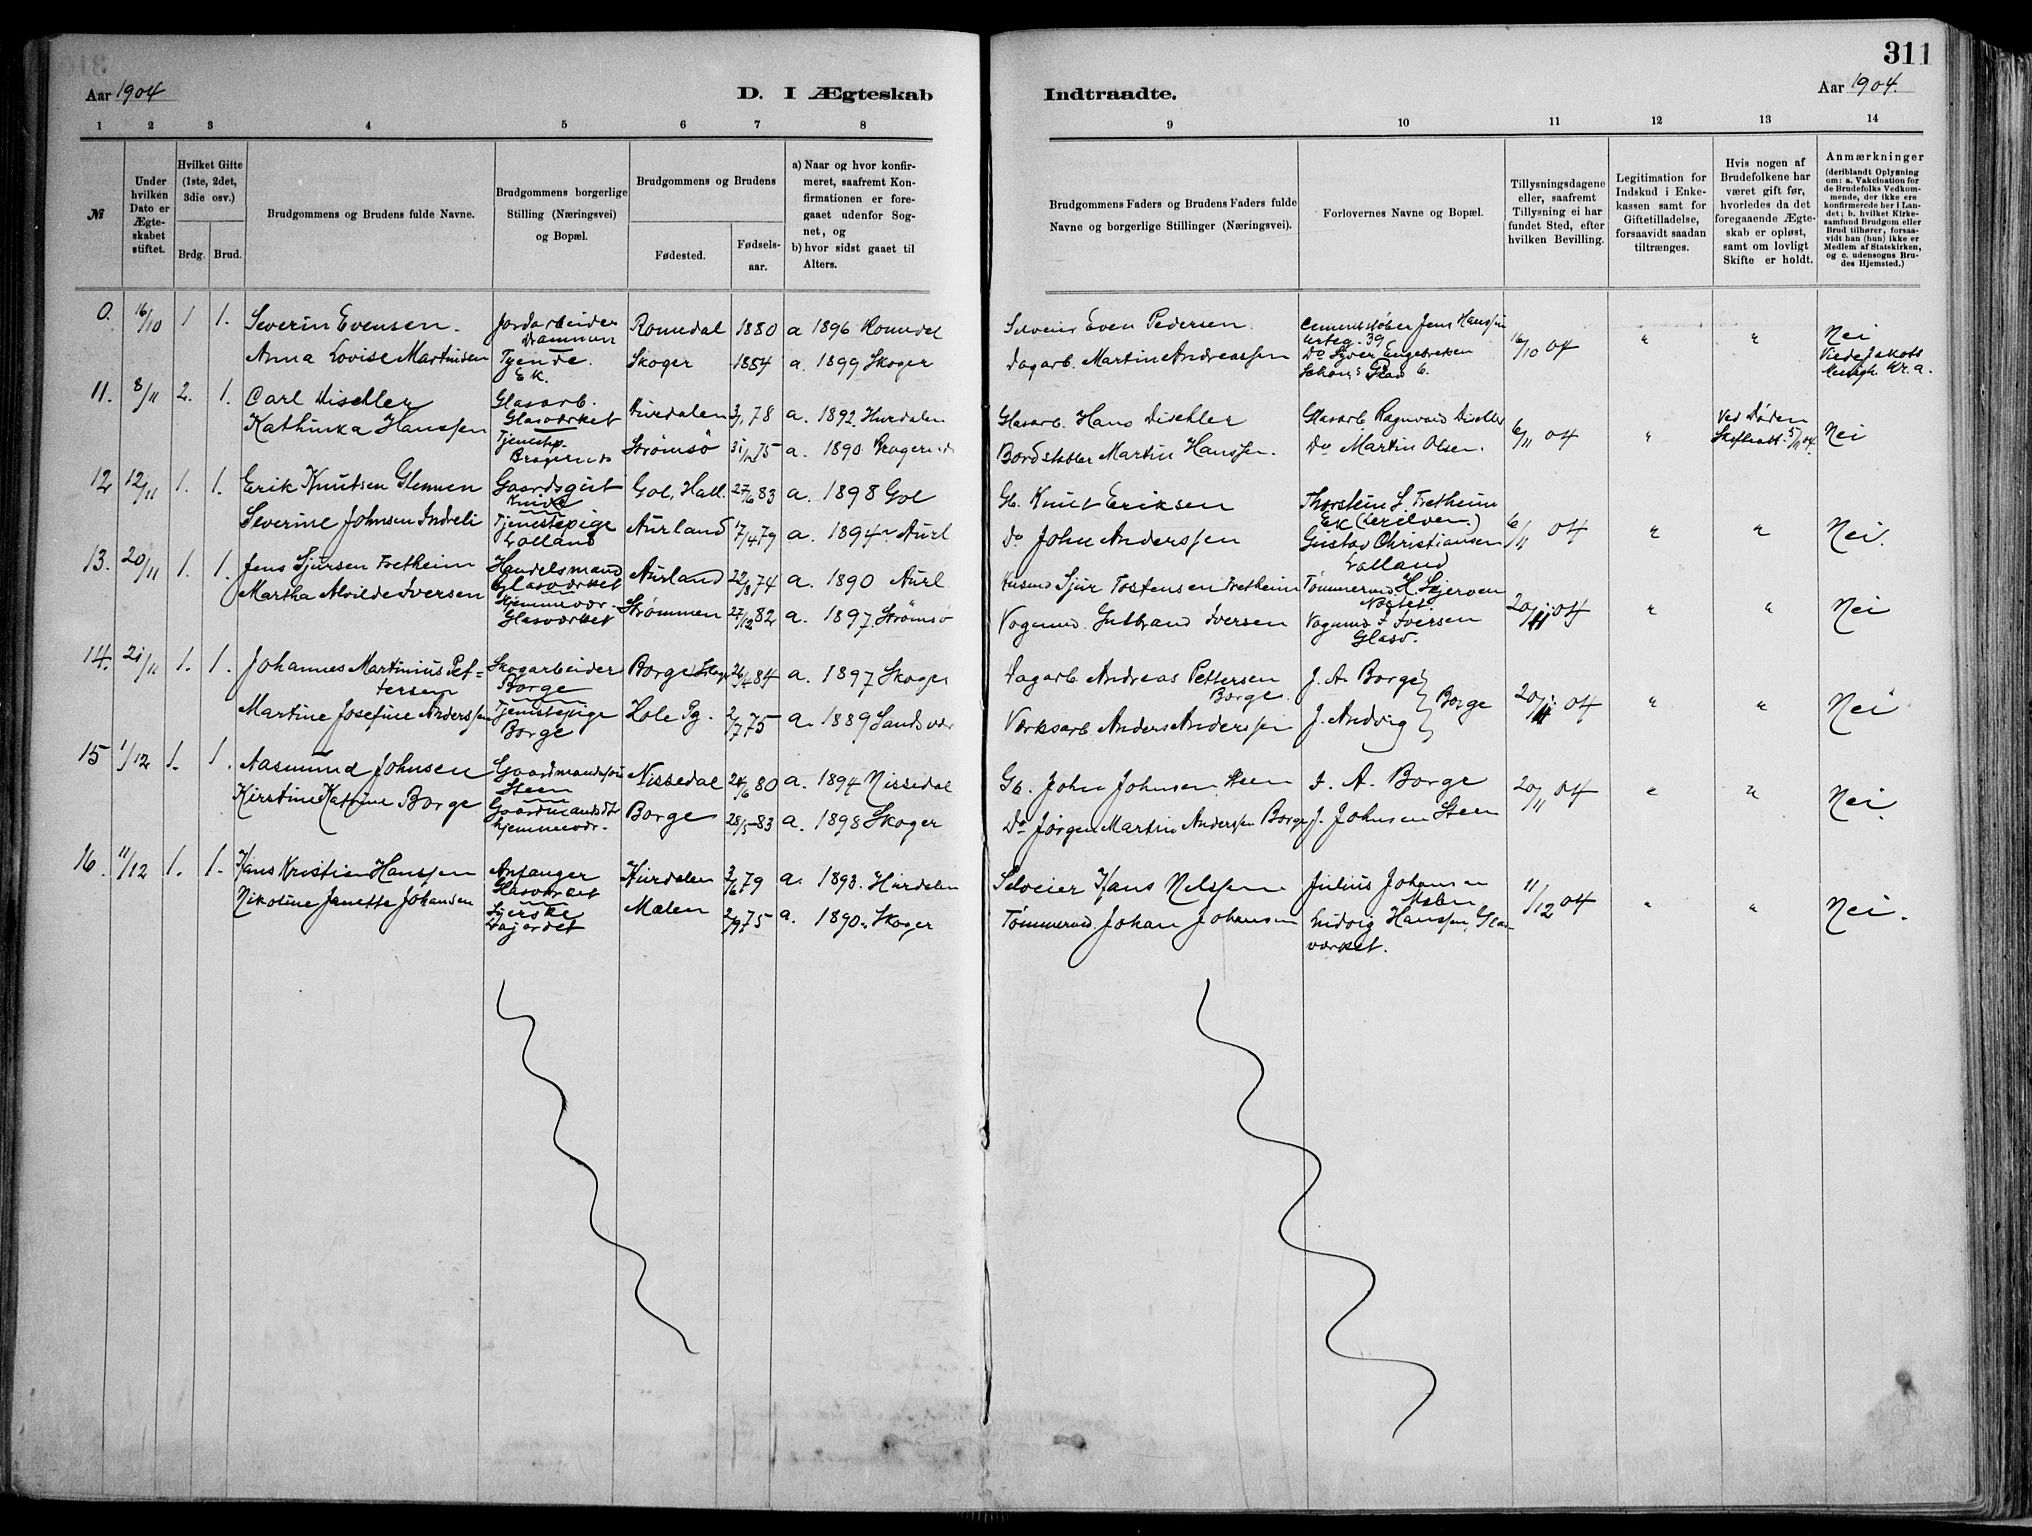 311
Aar 1904
D. I Ægteskab
Indtraadte.
Aar 1904.
1 2 3 4 5 6 7 8 9 10 11 12 13 14
№
Under hvilken Dato er Ægteskabet stiftet.
Hvilket Gifte (1ste, 2det, 3die osv.)
Brdg. Brud.
Brudgommens og Brudens fulde Navne.
Brudgommens borgerlige Stilling (Næringsvei) og Bopæl.
Brudgommens og Brudens
Fødested. Fødselsaar.
a) Naar og hvor konfirmeret, saafremt Konfirmationen er foregaaet udenfor Sognet, og
b) hvor sidst gaaet til Alters.
Brudgommens Faders og Brudens Faders fulde Navne og borgerlige Stillinger (Næringsvei).
Forlovernes Navne og Bopæl.
Tillysningsdagene eller, saafremt Tillysning ei har fundet Sted, efter hvilken Bevilling.
Legitimation for Indskud i Enkekassen samt for Giftetilladelse, forsaavidt saadan tiltrænges.
Hvis nogen af Brudefolkene har været gift før, hvorledes da det foregaaende Ægteskab er opløst, samt om lovligt Skifte er holdt.
Anmærkninger (deriblandt Oplysning om: a. Vakcination for de Brudefolks Vedkommende, der ikke ere konfirmerede her i Landet; b. hvilket Kirkesamfund Brudgom eller Brud tilhører, forsaavidt han (hun) ikke er Medlem af Statskirken, og c. udensogns Brudes Hjemsted.)
0. 16/10 1 1. Severin Evensen. Jordarbeider Drammen Romedal 1880 a 1896 Romedal Even Pedersen Jens Hanssen 39 16/10 04 " " Nei
Anna Lovise Martinsen Tyende. Ek. Skoger 1854 a. 1899 Skoger Dagarb. Martin Andreassen Do Syver Engebretsen Kr.a.
11. 8/11 2. 1. Carl Dischler Glasarb. Glasværket Hurdalen 3/1 78 a. 1892. Hurdalen Glasarb. Hans Dischler Glasarb Ragnvald Dischler 6/11 04 " Ved Døden Skifteatt. 5/11 04. Nei
Kathinka Hanssen Tjenestp. Bragernes Strømsø 31/12 75 a. 1890. Bragernes Bordstabler Martin Hanssen. Do Martin Olsen.
12 12/11 1. 1. Erik Knutsen Glemmen Gaardsgut Gol, Hall. 27/6 83 a. 1898 Gol Gb. Knut Eriksen Thorstein S. Fretheim Ek 6/11 04 " " Nei.
Severine Johnsen Indreli Tjenestepige Lolland Aurland 17/4 79 a. 1894. Aurl Do John Anderssen Gustav Christiansen Lolland
13. 20/11 1. 1. Jens Sjursen Fretheim Handelsmand Glasværket Aurland 22/8 74 a. 1890 Aurl Husmd Sjur Tostensen Fretheim Tømmermd H. Skjerven 20/11 04 " " Nei
Martha Alvilde Iversen Hjemmevær. Glasværket Strømmen 27/12 82 a. 1897. Strømsø Vognmd. Gulbrand Iversen Vognmd I Iversen Glasv.
14. 21/11 1. 1. Johannes Martinius Pettersen Skogarbeider Borge Borge Skoger 26/4 84 a. 1897 Skoger Dagarb. Andreas Pettersen Borge. J. A. Borge } Borge 20/11 04 " " Nei
Martine Josefine Anderssen Tjenestepige Borge Hole Pg. 2/7 75 a. 1889 Sandsvær Værksarb. Anders Anderssen J. Andvig
15 1/12 1. 1. Aasmund Johnsen Gaardmandssøn Steen Nissedal 24/6 80 a. 1894 Nissedal Gb. John Johnsen Steen J. A. Borge 20/11 04 " " Nei.
Kirstine Katrine Borge Gaardmandsdt hjemmevær. Borge 28/5 83 a. 1898 Skoger Do Jørgen Martin Andersen Borge J. Johnsen Steen
16. 11/12 1. 1. Hans Kristian Hanssen Anfanger Glasværket Hurdalen 3/6 79 a. 1893. Hurdalen Selveier Hans Nilssen Julius Johansen 11/12 04 " " Nei.
Nikoline Janette Johansen Syerske Mælen 2/9 75 a. 1890. Skoger Tømmermd. Johan Johansen Ludvig Hanssen, Glasværket.